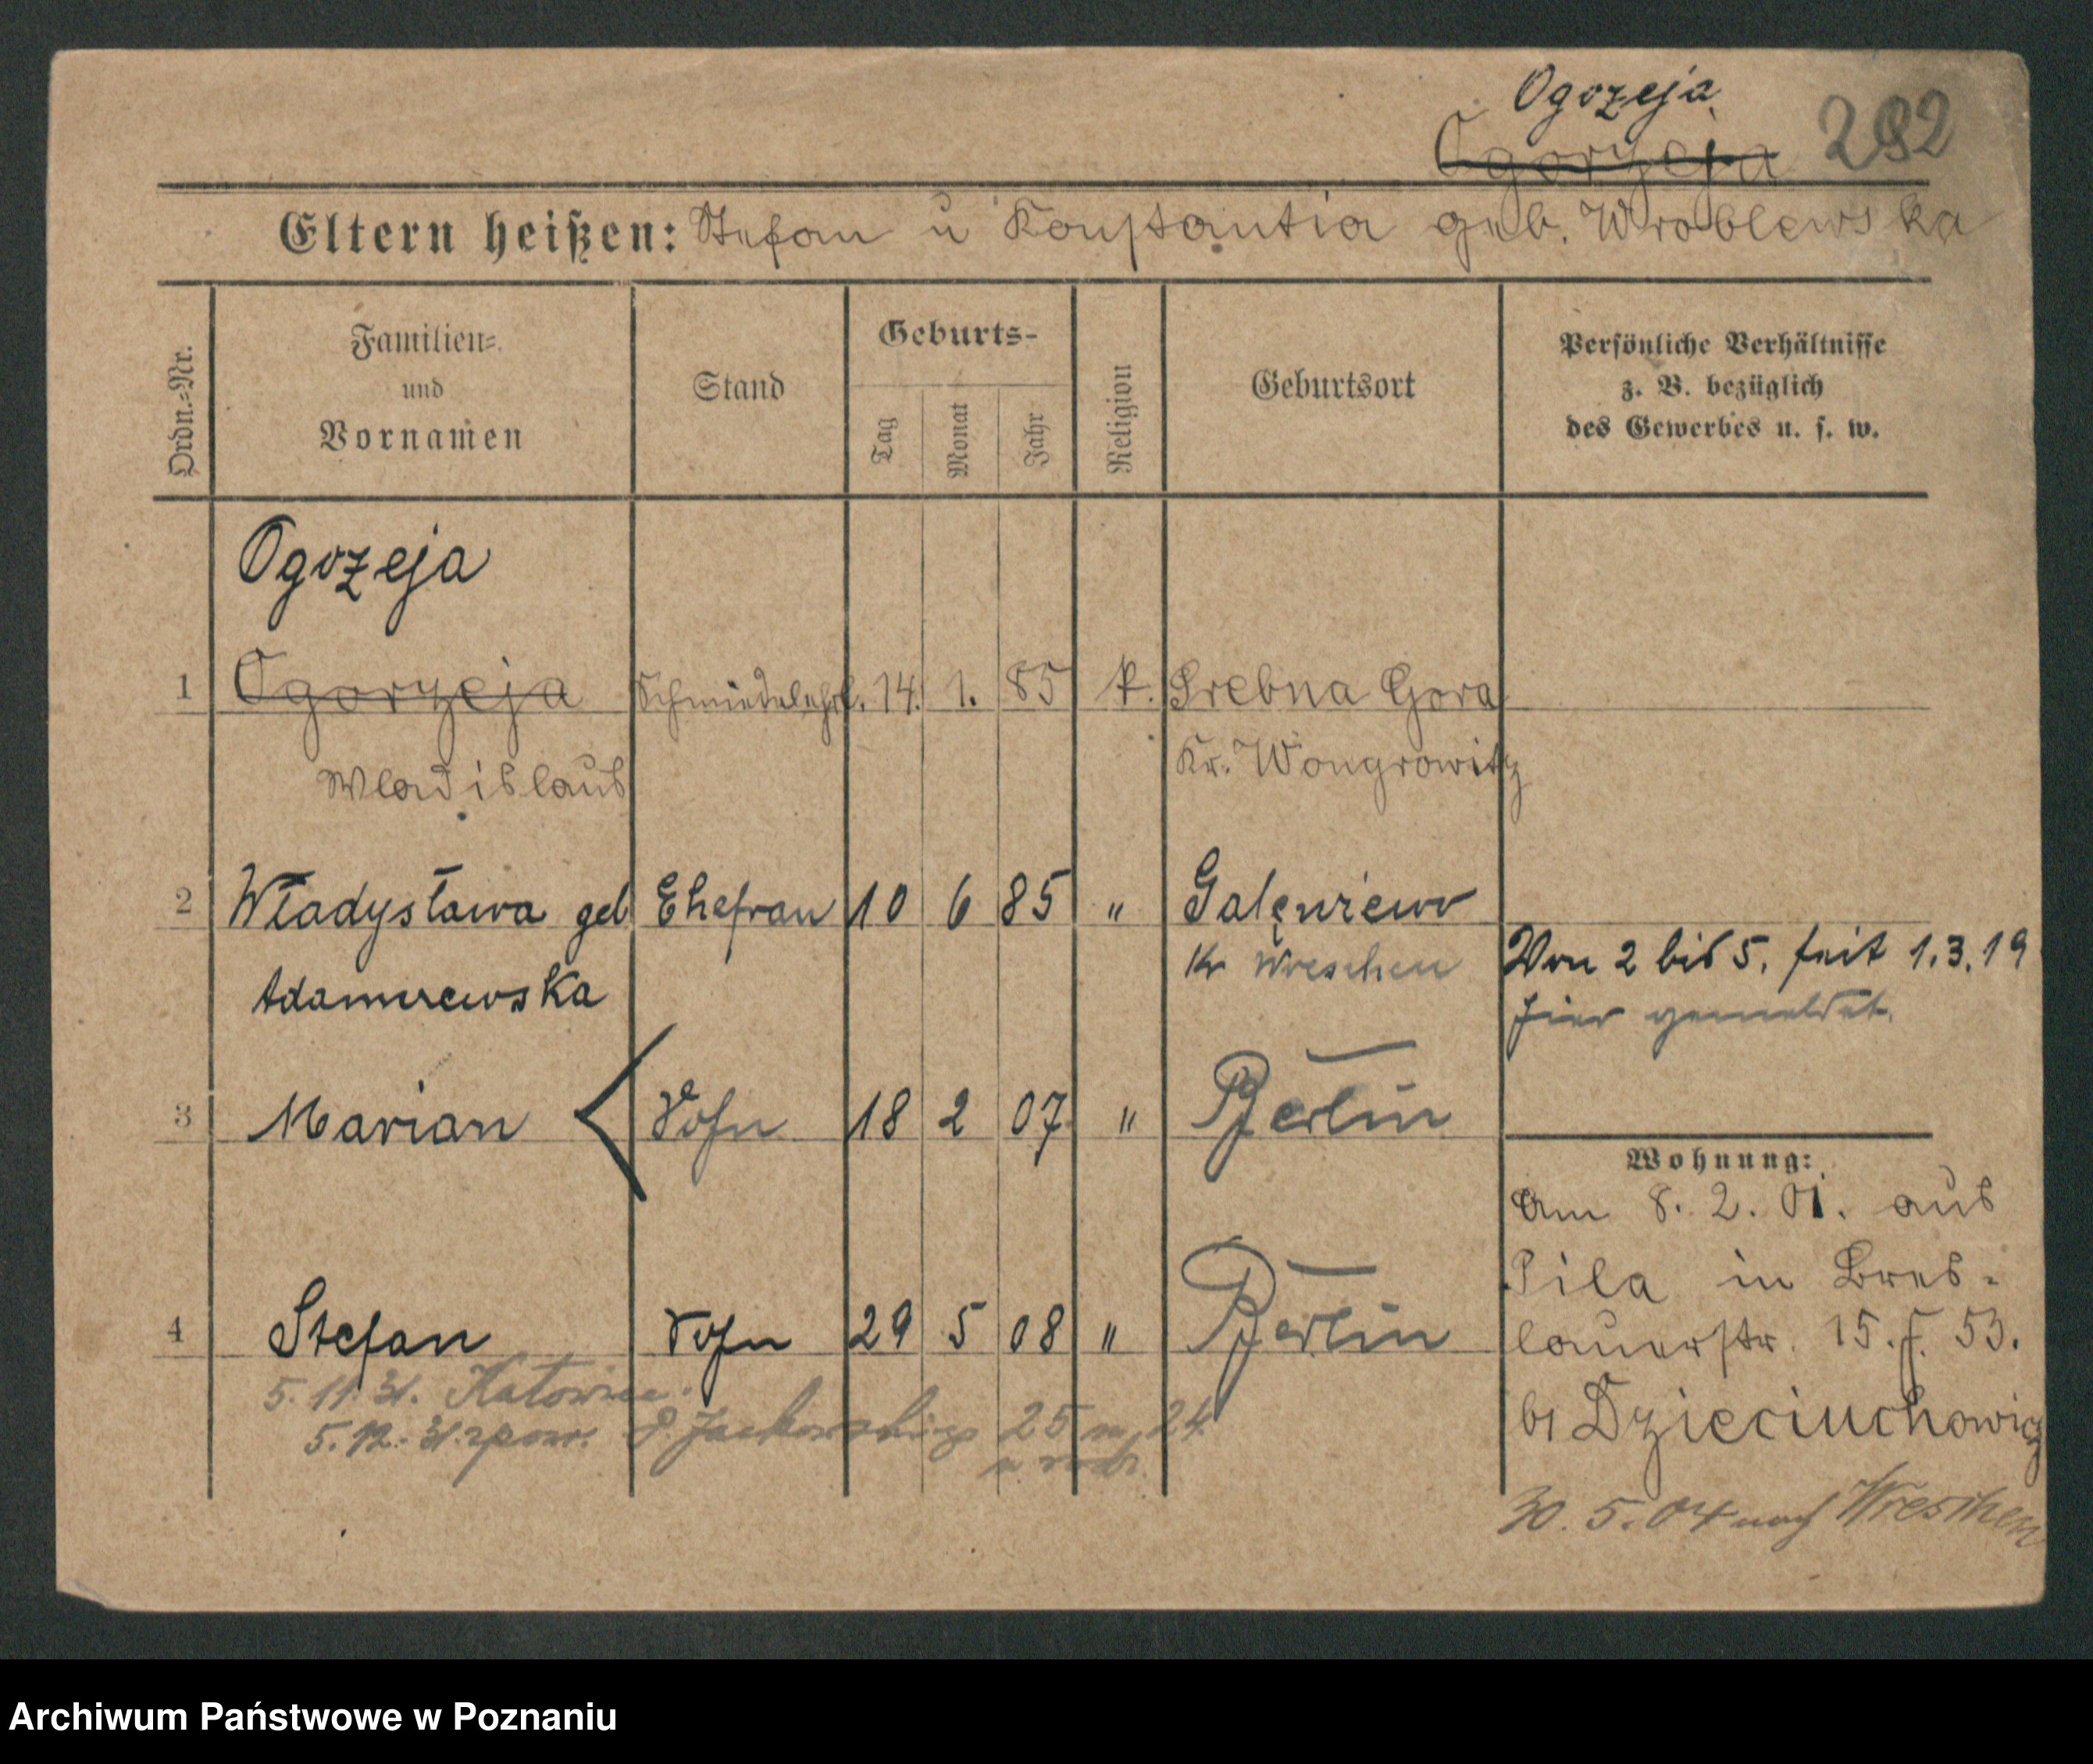 Ogozeja
Ogorzeja 292
Eltern heißen: Stefan u Konstantia geb. Wroblewska
Ordn.=Nr.
Familien=
und
Vornamen
Stand
Geburts-
Tag
Monat
Jahr
Religion
Geburtsort
Persönliche Verhältnisse
z. B. bezüglich
des Gewerbes u. s. w.
Ogozeja
1 Ogorzeja Schmiedelehrl. 14. 1. 85 k. Srebna Gora
Wladislaus Kr. Wongrowitz
2 Władysława geb Ehefrau 10 6 85 "
Adamczewska Kr Wreschen
Von 2 bis 5. seit 1.3.19
hier gemeldet.
3 Marian Sohn 18 2 07 " Berlin
Wohnung:
Am 8. 2. 01. aus
Pila in Bres-
lauerstr. 15. f. 53.
4 Stefan Sohn 29 5 08 " Berlin
5. 11. 31. Katowice.
5. 12. 31. zpow. 25 m 24
bi Dzieciuchowicz
30. 5. 04 nach Wreschen
Archiwum Państwowe w Poznaniu